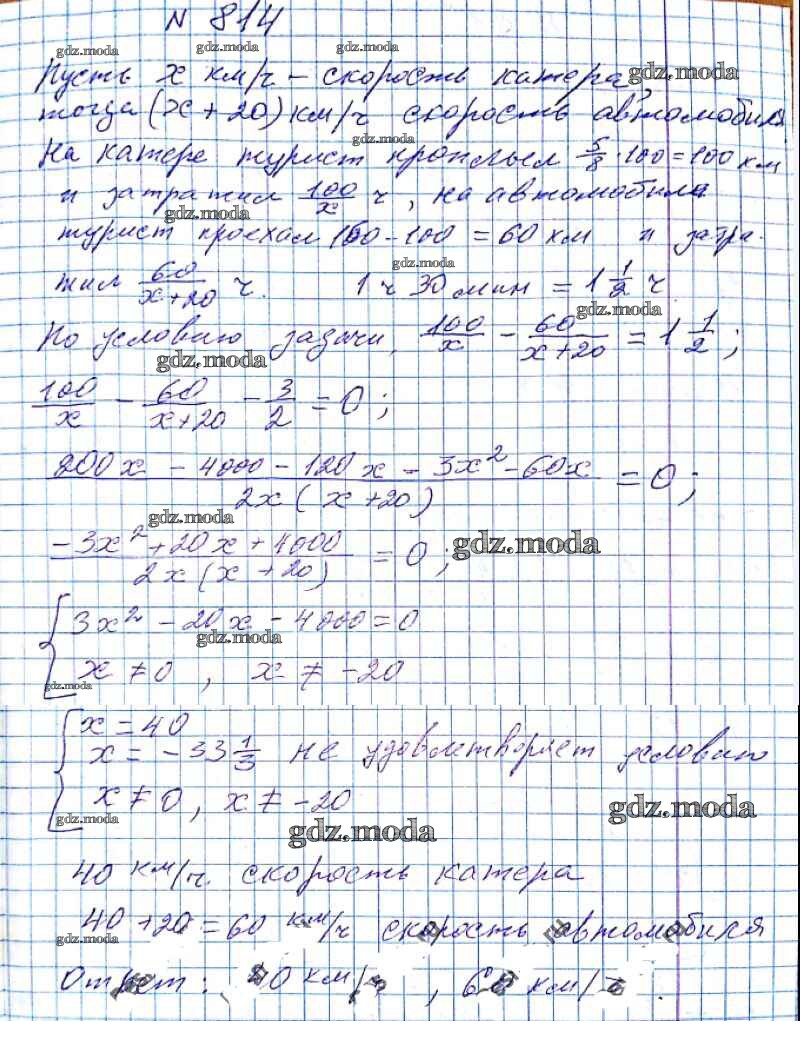 № 814
gdz.moda
gdz.moda gdz.moda gdz.moda
Пусть x км/ч – скорость катера, gdz.moda
тогда (x + 20) км/ч скорость автомобиля.
gdz.moda
На катере турист проплыл 5/8 · 160 = 100 км
и затратил 100/x ч, на автомобиле
gdz.moda
турист проехал 160 – 100 = 60 км и затра-
gdz.moda
тил 60/(x+20) ч. 1 ч 30 мин = 1 1/2 ч
gdz.moda
По условию задачи, 100/x – 60/(x+20) = 1 1/2 ;
gdz.moda
100/x – 60/(x+20) – 3/2 = 0 ;
(200x – 4000 – 120x – 3x² – 60x)/(2x(x+20)) = 0 ;
gdz.moda
(–3x² + 20x + 4000)/(2x(x+20)) = 0 ; gdz.moda
3x² – 20x – 4000 = 0
gdz.moda
x ≠ 0 , x ≠ –20
gdz.moda
x = 40
x = –33 1/3 не удовлетворяет условию
x ≠ 0 , x ≠ –20
gdz.moda gdz.moda gdz.moda
40 км/ч. скорость катера
40 + 20 = 60 км/ч скорость автомобиля
gdz.moda
Ответ: 40 км/ч , 60 км/ч .